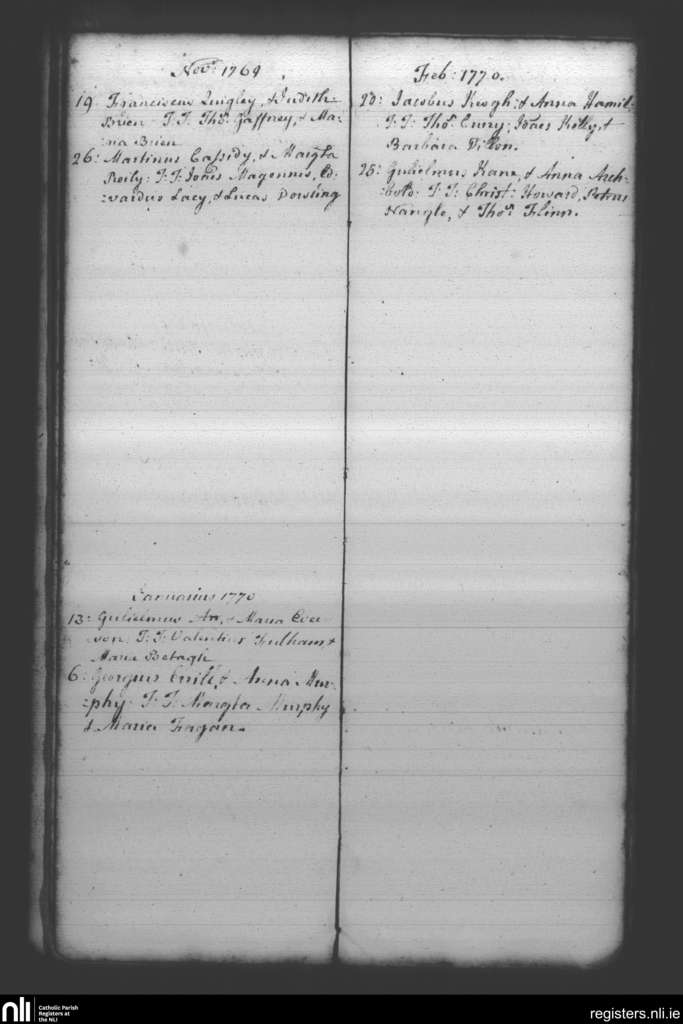 Nov: 1769
19. Franciscus Quigley, & Judith
Brien. T.T. Tho: Gaffney, & Ma-
ria Brien
26: Martinus Cassidy, & Margta
Reily: T:T: Joñes Magennis, Ed-
:vardus Lacy, & Lucas Dowling
Januarius 1770
13: Gulielmus & Maria
T:T: Valentius Fulham &
Maria Betagh
6: Georgius & Anna Mur-
:phy: T:T: Margta Murphy
& Maria Fagan.
Feb: 1770.
20: Jacobus Keogh: & Anna Hamil-
T:T: Tho: Joães Kelly &
Barbara Dillon.
25: Gulielmus Kane, & Anna Arch-
:bold: T:T: Christ: Howard, Petrus
Nangle, & Thos Flinn.
nli
Catholic Parish
Registers at
the NLI
registers.nli.ie